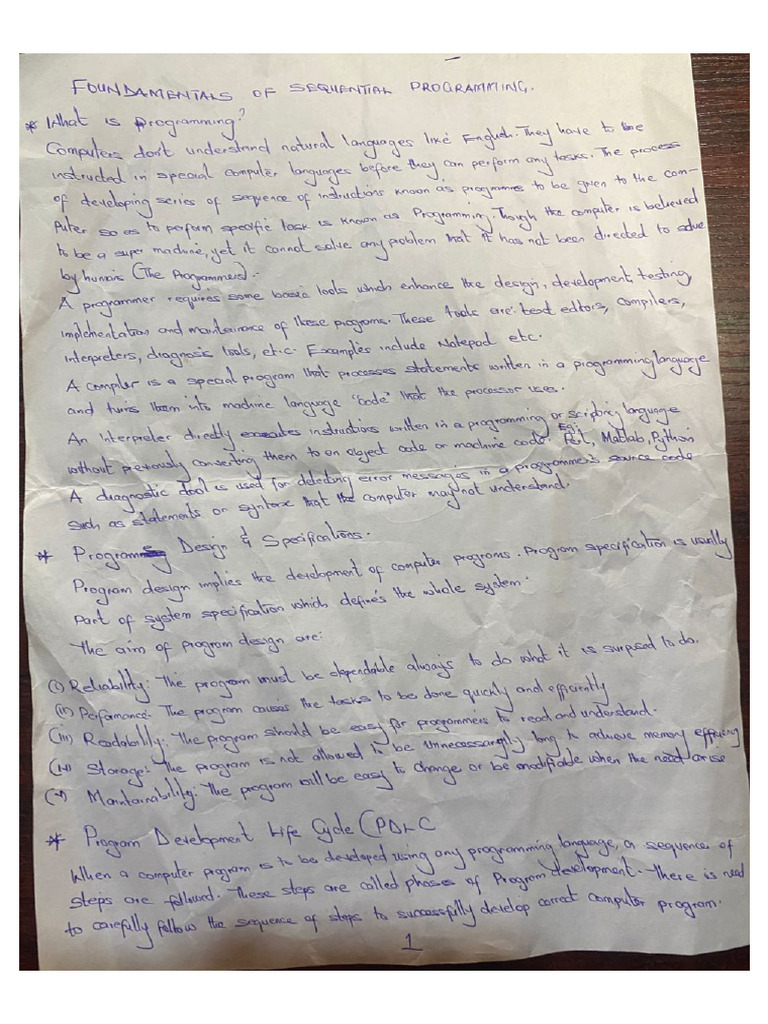 FOUNDAMENTALS OF SEQUENTIAL PROGRAMMING.
* What is programming?
Computers don't understand natural languages like English. They have to be
instructed in special computer languages before they can perform any tasks. The process
of developing series of sequence of instructions known as programmes to be given to the com-
puter so as to perform specific task is known as Programming. Though the computer is believed
to be a super machine, yet it cannot solve any problem that it has not been directed to solve
by humans (The Programmers).
A programmer requires some basic tools which enhance the design, development, testing,
implementation and maintenance of these programs. These tools are: text editors, compilers,
interpreters, diagnosis tools, etc. Examples include Notepad etc.
A compiler is a special program that processes statements written in a programming language
and turns them into machine language "code" that the processor uses.
An Interpreter directly executes instructions written in a programming or scripting language
without previously converting them to an object code or machine code. Eg: Perl, Matlab, Python
A diagnostic tool is used for detecting error messages in a programmer's source code
such as statements or syntax that the computer may not understand.
* Program Design & Specifications.
Program design implies the development of computer programs. Program specification is usually
part of system specification which defines the whole system.
The aim of program design are:
(i) Reliability: The program must be dependable always to do what it is surposed to do.
(ii) Performance: The program causes the tasks to be done quickly and efficiently
(iii) Readability: The program should be easy for programmers to read and understand.
(iv) Storage: The program is not allowed to be unnecessarily long to achieve memory efficiency
(v) Maintainability: The program will be easy to change or be modifiable when the need arise
* Program Development Life Cycle (PDLC
When a computer program is to be developed using any programming language, a sequence of
steps are followed. These steps are called phases of Program development. There is need
to carefully follow the sequence of steps to successfully develop correct computer program.
1